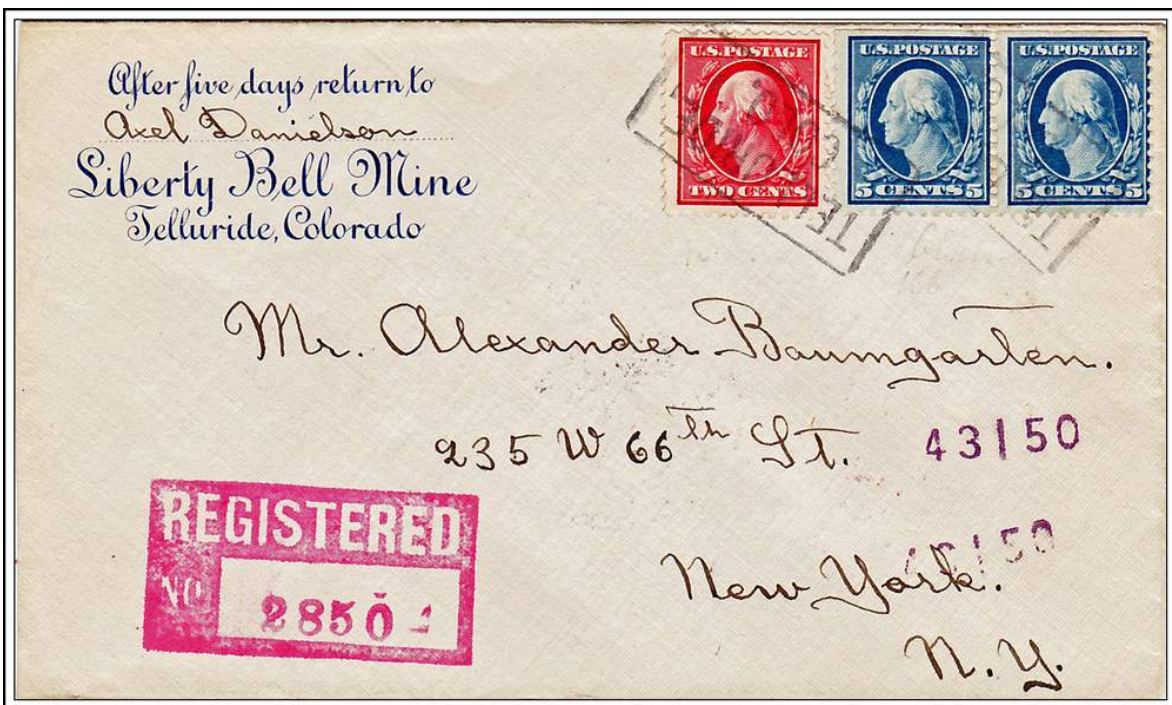 After five days return to
Axel Danielson
Liberty Bell Mine
Telluride, Colorado
U.S. POSTAGE
TWO CENTS
U.S. POSTAGE
5 CENTS 5
U.S. POSTAGE
5 CENTS 5
Mr. Alexander Baumgarten.
235 W 66th St.
43150
43150
New York.
N.Y.
REGISTERED
NO
2850